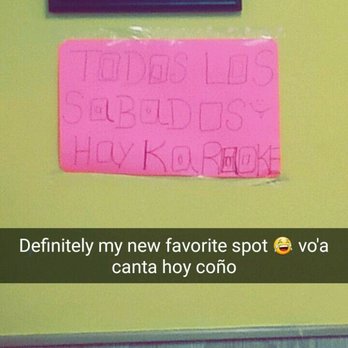 TODOS LOS
SaBADOS
HOY KaRaOKE
Definitely my new favorite spot 😂 vo'a
canta hoy coño